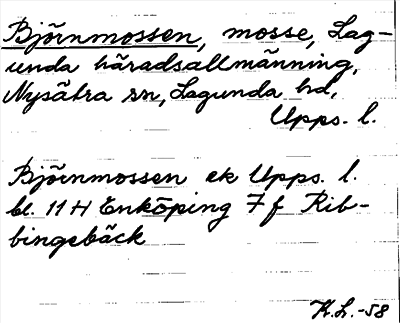 Björnmossen, mosse, Lag-
unda häradsallmänning,
Nysätra sn, Lagunda hd,
Upps. l.
Björnmossen ek Upps. l.
bl. 11 H Enköping 7 f Rib-
bingebäck
K.L.-58